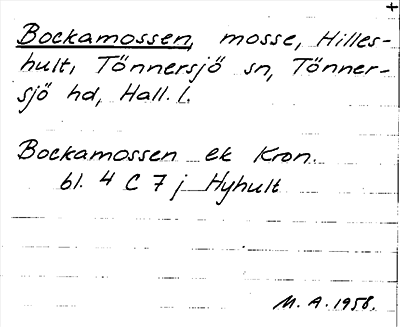 +
Bockamossen, mosse, Hilles-
hult, Tönnersjö sn, Tönner-
sjö hd, Hall. l.
Bockamossen ek Kron.
bl. 4 C 7 j Hyhult
M. A. 1958.